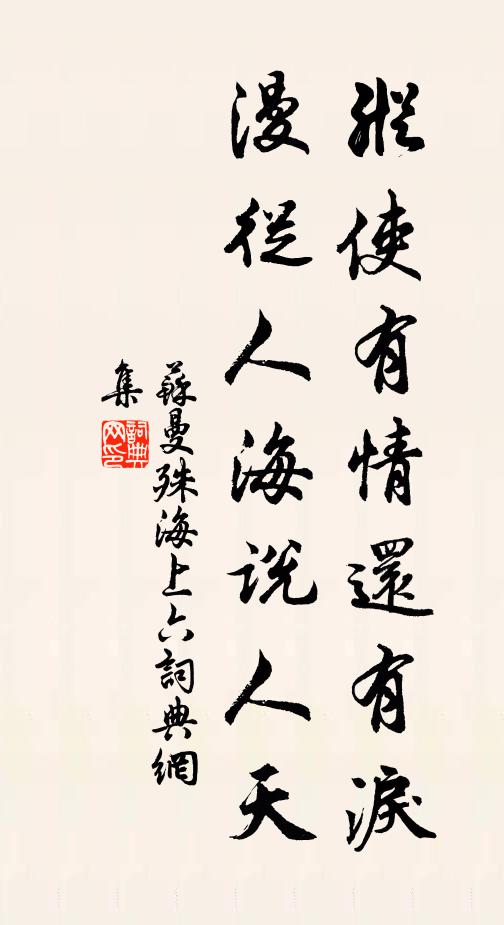 縱使有情還有淚
漫從人海説人天
蘇曼殊海上六詞典網
集
詞典网印